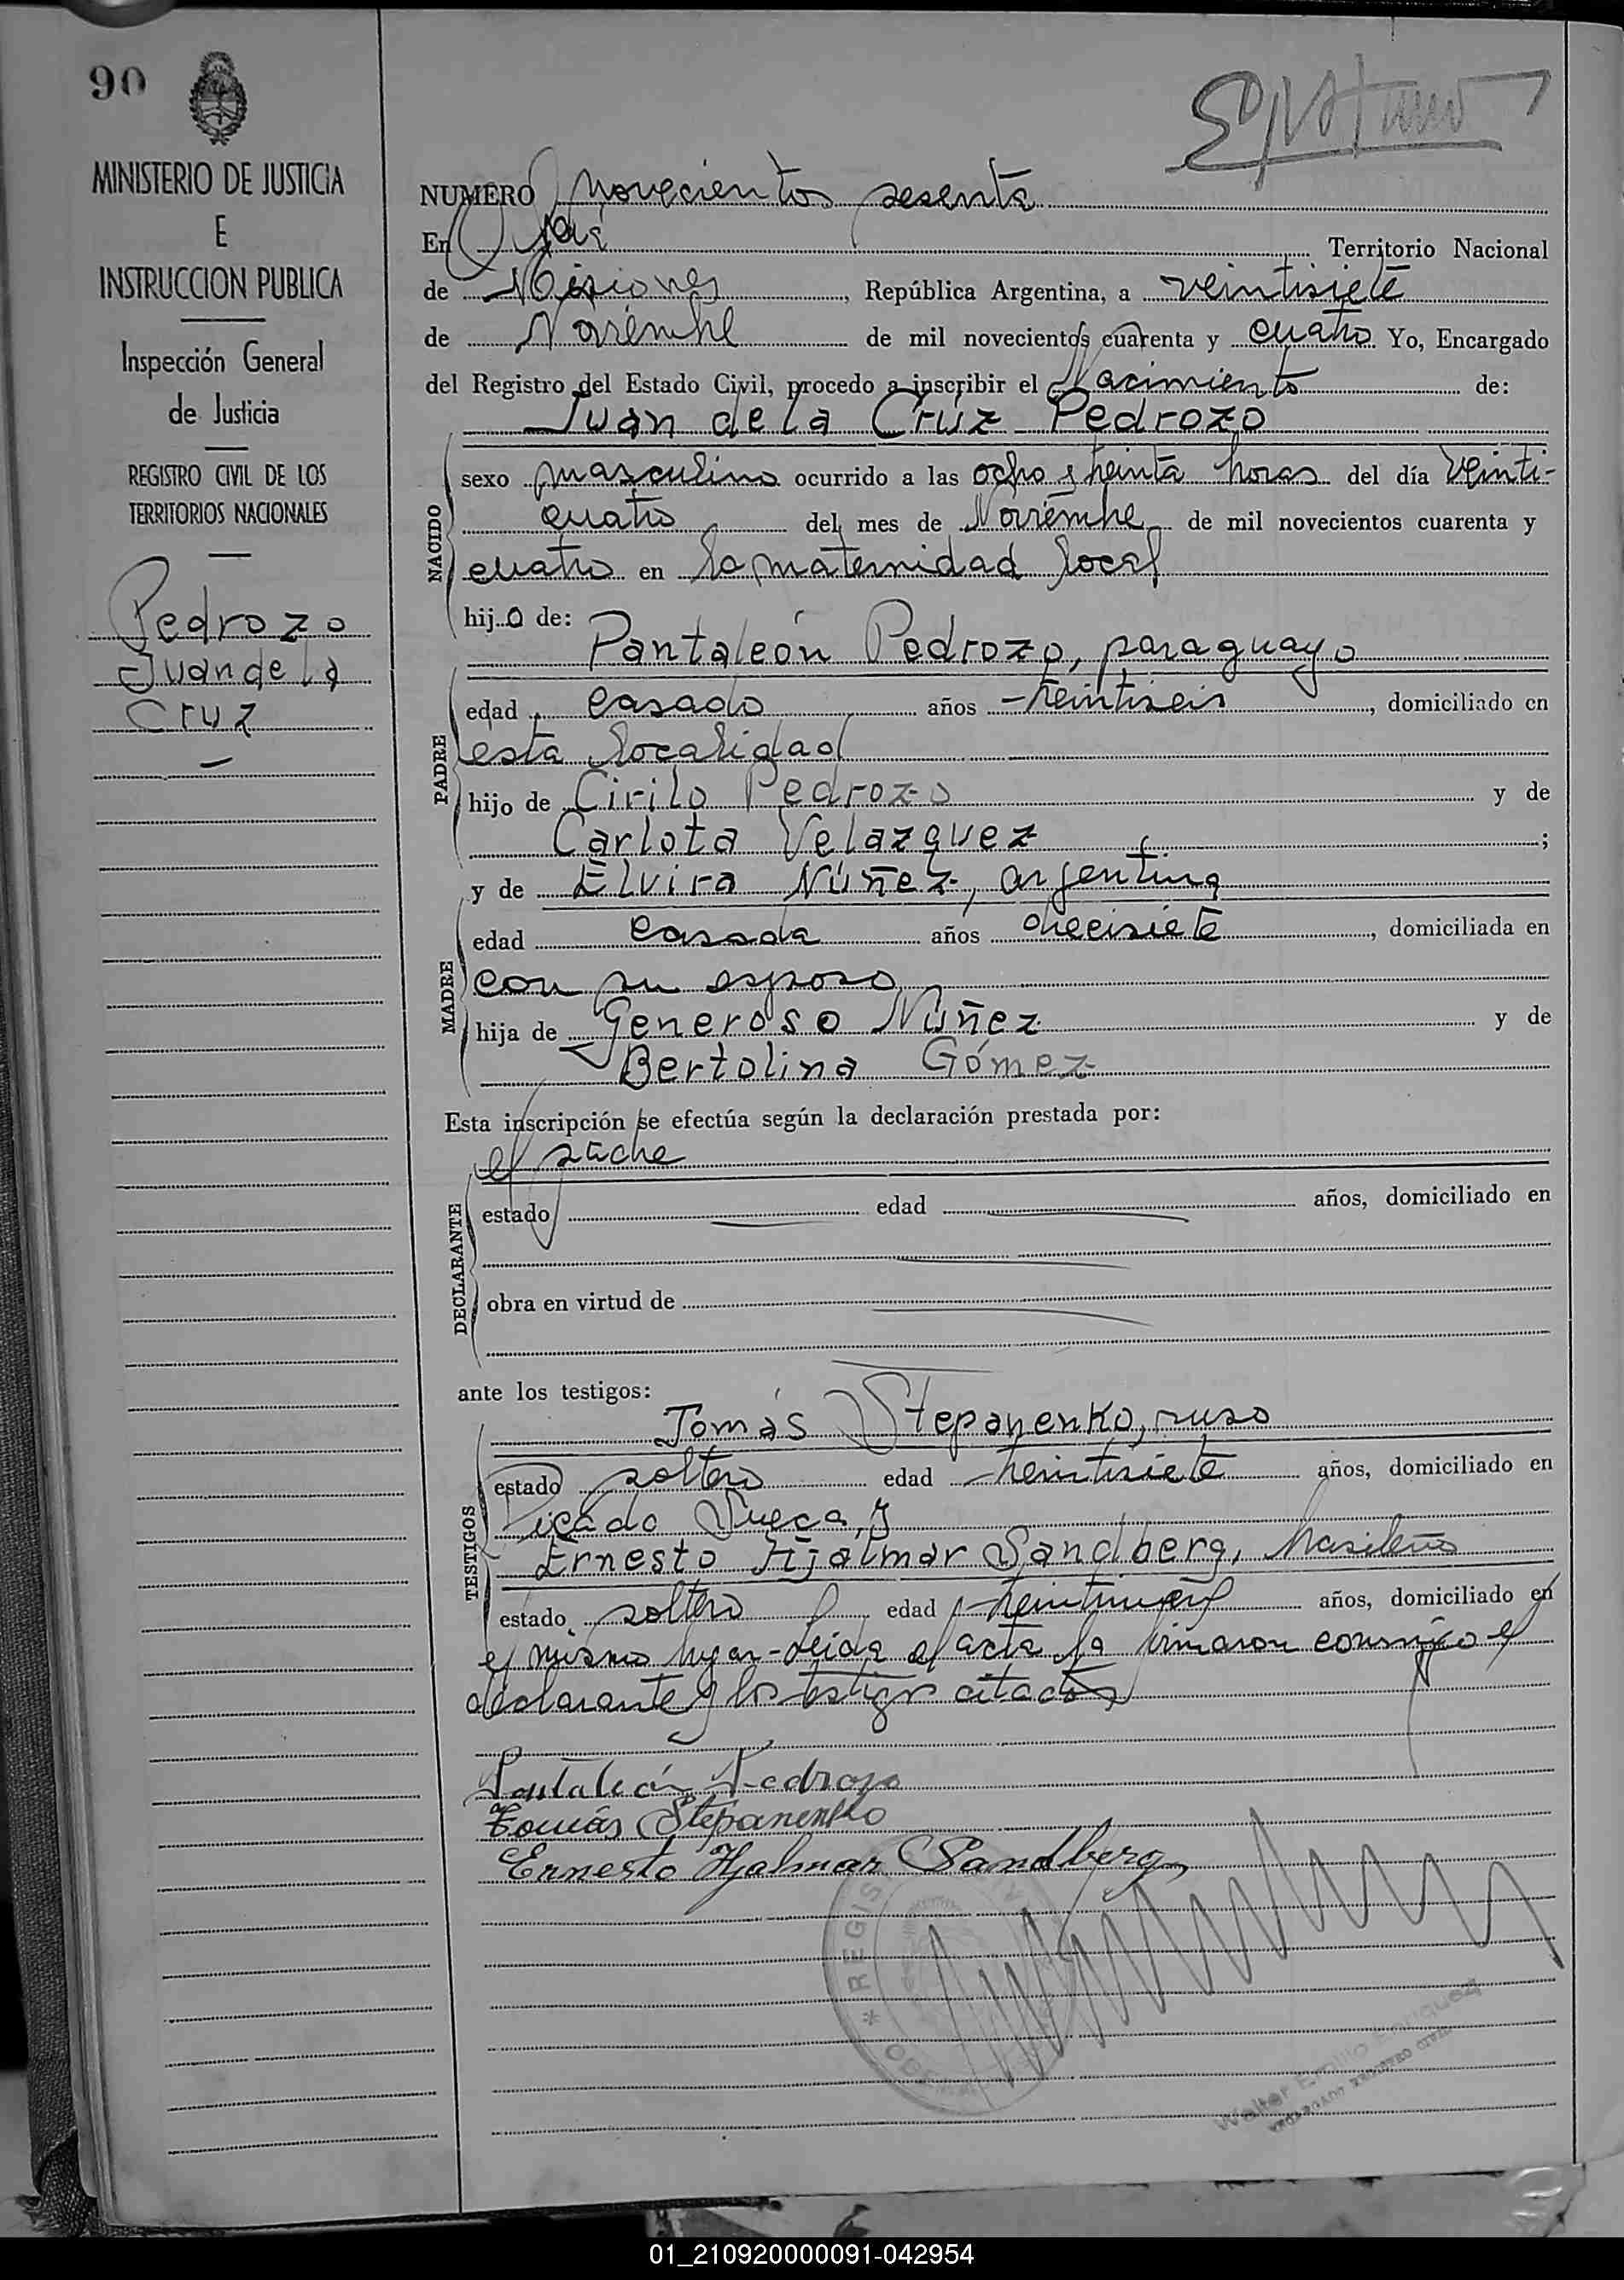 90
MINISTERIO DE JUSTICIA
E
INSTRUCCION PUBLICA
Inspección General
de Justicia
REGISTRO CIVIL DE LOS
TERRITORIOS NACIONALES
Pedrozo
Juan de la
Cruz
NUMERO novecientos sesenta
En Oberá Territorio Nacional
de Misiones, República Argentina, a veintisiete
de Noviembre de mil novecientos cuarenta y cuatro Yo, Encargado
del Registro del Estado Civil, procedo a inscribir el Nacimiento de:
Juan de la Crúz Pedrozo
NACIDO
sexo masculino ocurrido a las ocho y treinta horas del día veinti-
cuatro del mes de Noviembre de mil novecientos cuarenta y
cuatro en la maternidad local
hijo de:
Pantaleón Pedrozo, paraguayo
PADRE
edad casado años treintiseis, domiciliado en
esta localidad
hijo de Cirilo Pedrozo y de
Carlota Velazquez ;
y de Elvira Núñez, argentina
MADRE
edad casada años diecisiete, domiciliada en
con su esposo
hija de Generoso Núñez y de
Bertolina Gómez
Esta inscripción se efectúa según la declaración prestada por:
el padre
DECLARANTE
estado edad años, domiciliado en
obra en virtud de
ante los testigos:
Tomás Stepanenko, ruso
TESTIGOS
estado soltero edad treintisiete años, domiciliado en
Picada Sueca, y
Ernesto Hjalmar Sandberg, brasileño
estado soltero edad años, domiciliado en
el mismo lugar-leida el acta la firmaron conmigo el
declarante y los testigos citados
Pantaleón Pedrozo
Tomás Stepanenko
Ernesto Hjalmar Sandberg
REGIS
Walter Emilio Enriquez
ENCARGADO REGISTRO CIVIL
01_210920000091-042954